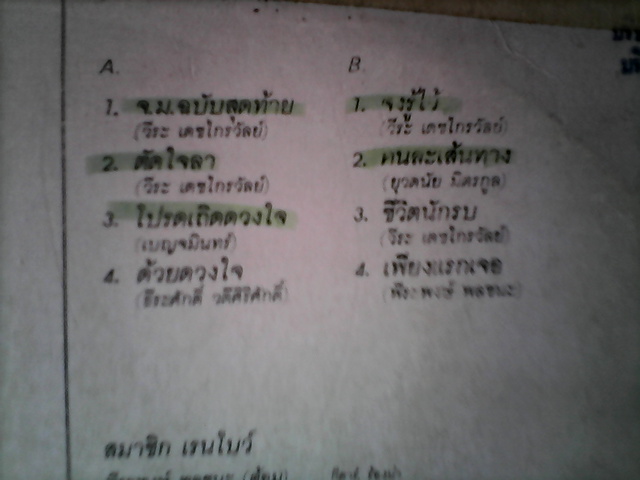 A.
1. จ.ม.ฉบับสุดท้าย
(วีระ เดชไกรวัลย์)
2. ตัดใจลา
(วีระ เดชไกรวัลย์)
3. โปรดเถิดดวงใจ
(เบญจมินทร์)
4. ด้วยดวงใจ
(ธีระศักดิ์
B.
1. จงรู้ไว้
(วีระ เดชไกรวัลย์)
2. คนละเส้นทาง
(ยุวดนัย มิตรกูล)
3. ชีวิตนักรบ
(วีระ เดชไกรวัลย์)
4. เพียงแรกเจอ
(พีระพงษ์ พลชนะ)
สมาชิก เรนโบว์